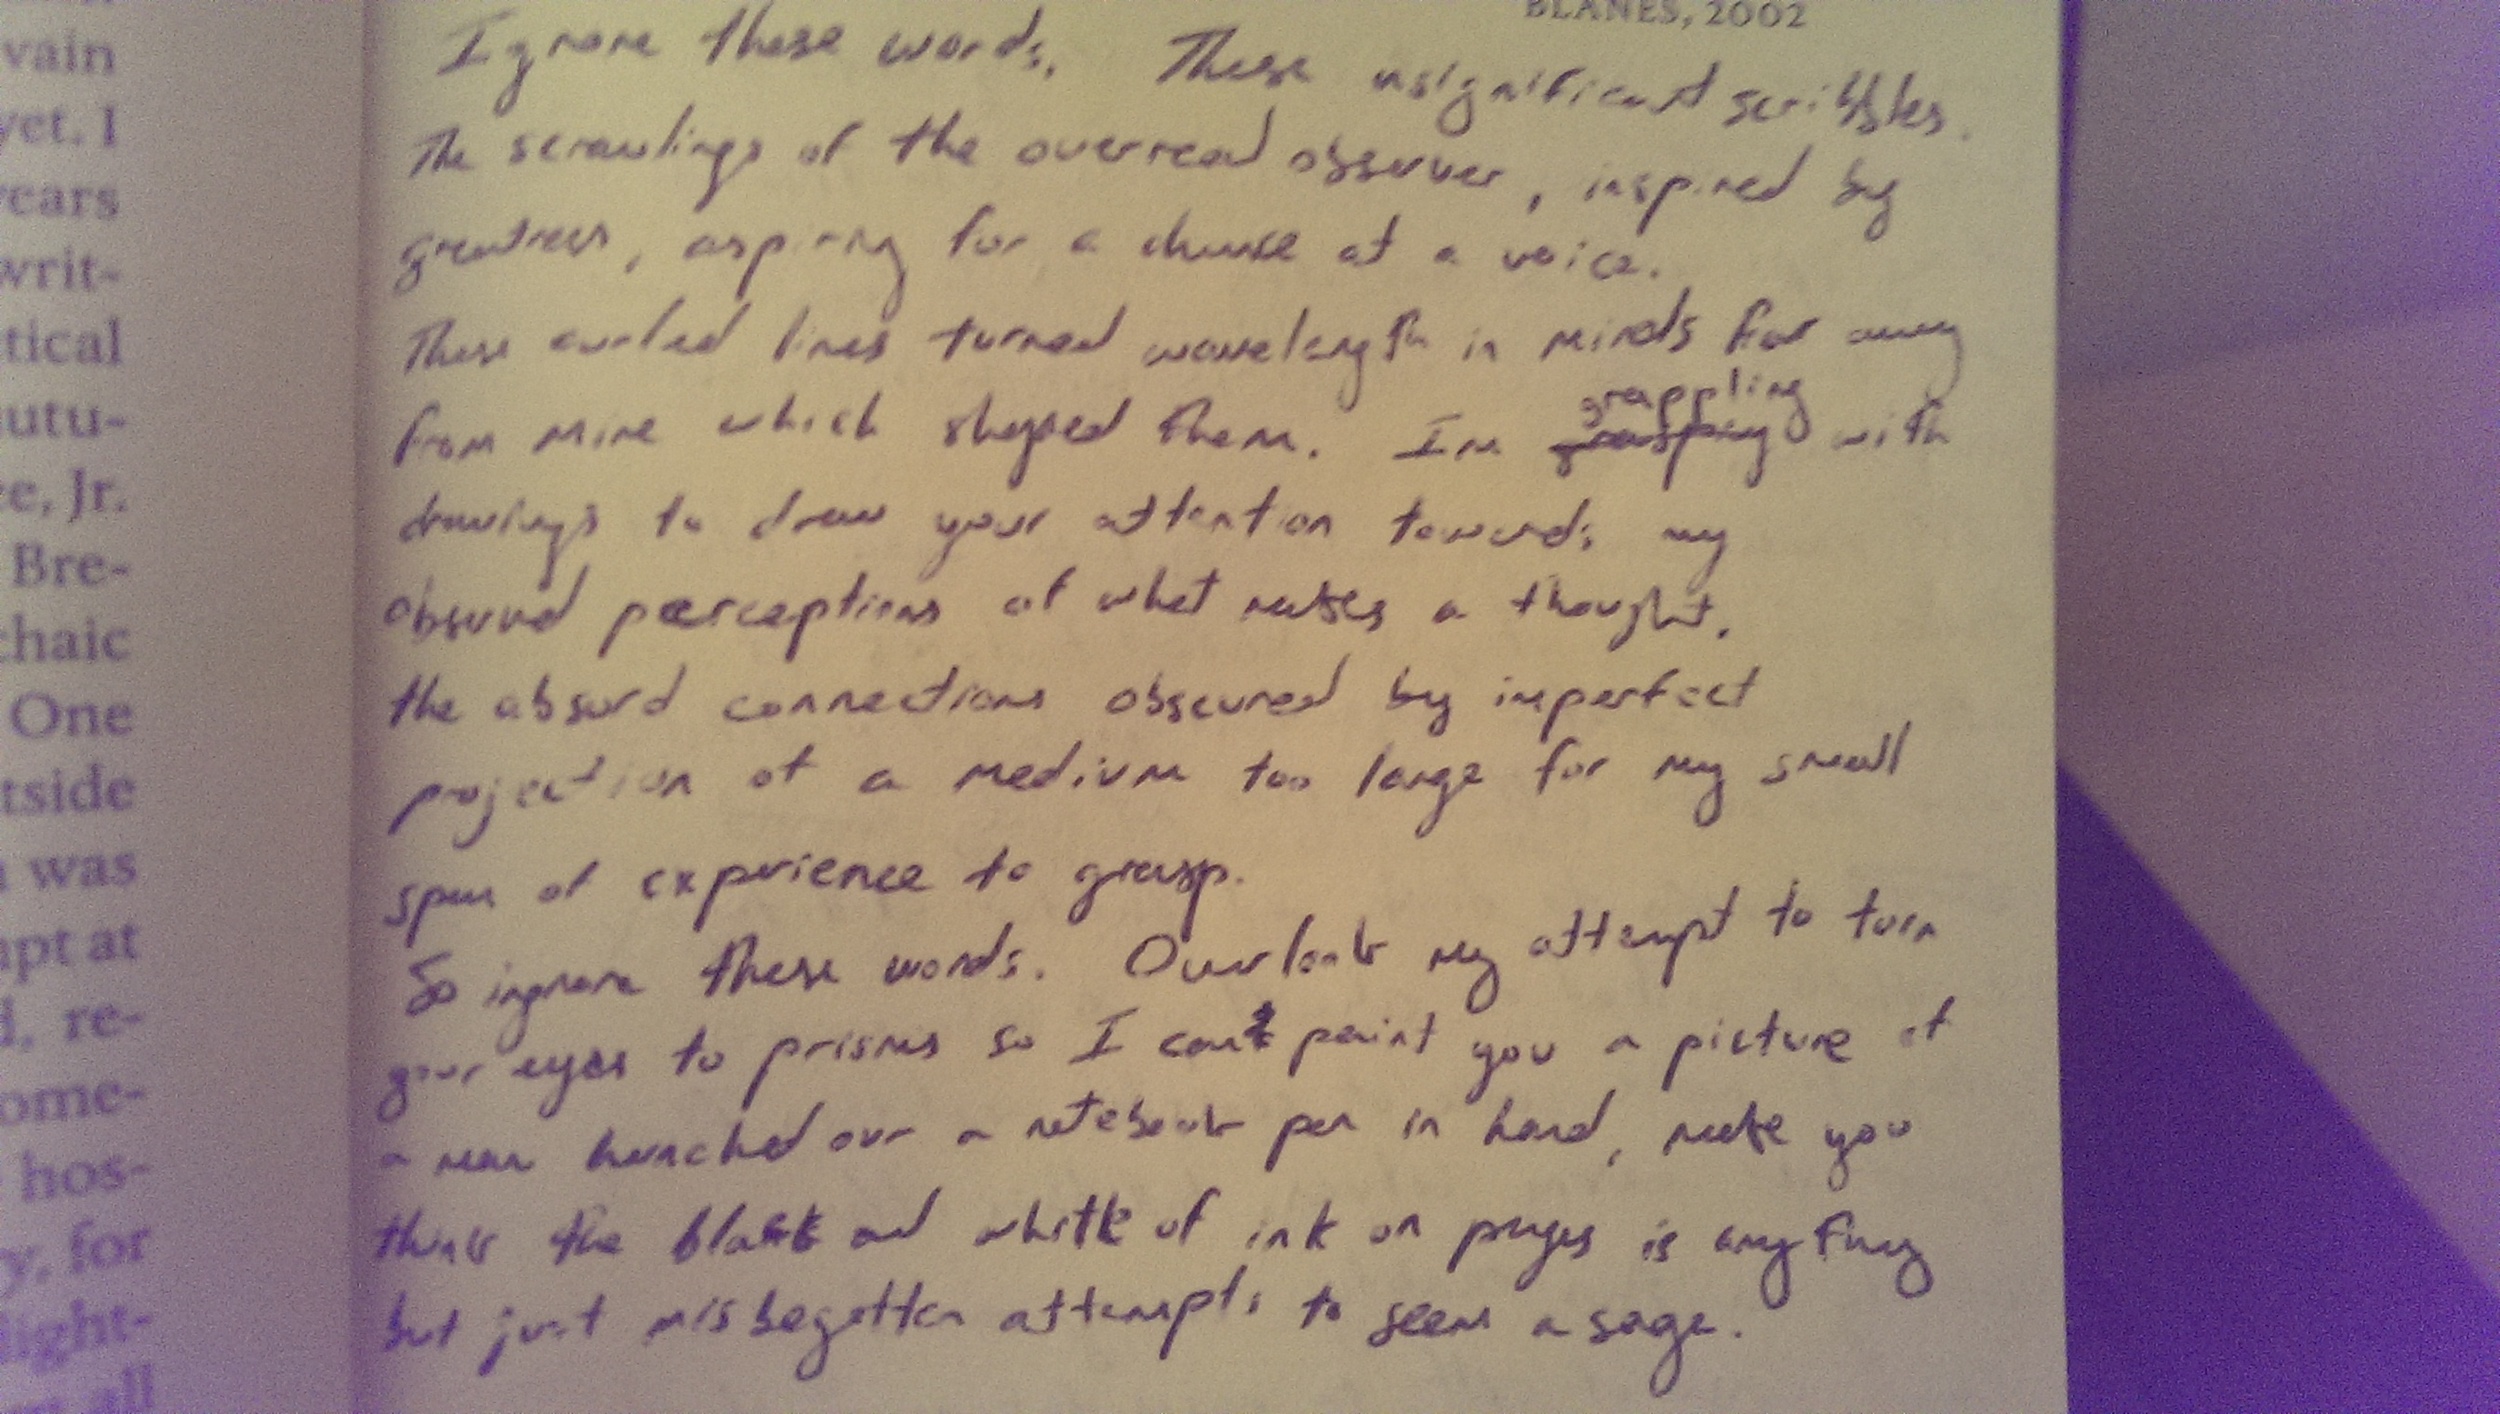 vain
yet. I
years
writ-
tical
utu-
ee, Jr.
Bre-
chaic
One
tside
was
pt at
re-
ome-
hos-
y, for
light-
all
BLANES, 2002
Ignore these words. These insignificant scribbles.
The scrawlings of the overread observer, inspired by
greatness, aspiring for a chance at a voice.
These curled lines turned wavelength in minds far away
grappling
from mine which shaped them. Im grasping with
drawings to draw your attention towards my
absurd perceptions of what makes a thought.
the absurd connections obscured by imperfect
projection of a medium too large for my small
span of experience to grasp.
So ingnore these words. Overlook my attempt to turn
your eyes to prisms so I can paint you a picture of
a man hunched over a notebook pen in hand, make you
think the black and white of ink on pages is anything
but just misbegotten attempts to seem a sage.